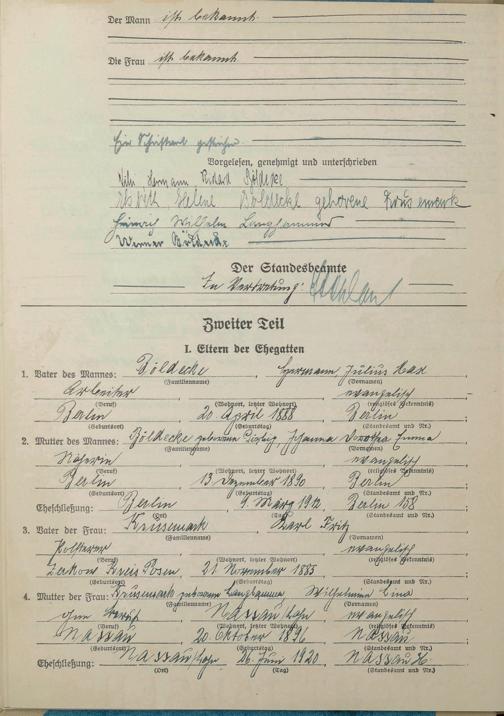 Der Mann ist bekannt.
Die Frau ist bekannt.
Ein Schriftwort gestrichen.
Vorgelesen, genehmigt und unterschrieben
Hermann Richard Böldecke
Helene Böldecke geborene Krusemark
Heinrich Wilhelm Langhammer
Werner Böldecke
Der Standesbeamte
In Vertretung:
Zweiter Teil
I. Eltern der Ehegatten
1. Vater des Mannes: Böldecke, Hermann Julius Max
(Familienname) (Vornamen)
Arbeiter, evangelisch
(Beruf) (Wohnort, letzter Wohnort) (religiöses Bekenntnis)
Berlin, 20. April 1888, Berlin
(Geburtsort) (Geburtstag) (Standesamt und Nr.)
2. Mutter des Mannes: Böldecke geborene Johanna Dorothea Emma
(Familienname) (Vornamen)
Näherin, evangelisch
(Beruf) (Wohnort, letzter Wohnort) (religiöses Bekenntnis)
Berlin, 13. Dezember 1890, Berlin
(Geburtsort) (Geburtstag) (Standesamt und Nr.)
Eheschließung: Berlin, 9. März 1912, Berlin 158
(Ort) (Tag) (Standesamt und Nr.)
3. Vater der Frau: Krusemark, Karl Fritz
(Familienname) (Vornamen)
Polsterer, evangelisch
(Beruf) (Wohnort, letzter Wohnort) (religiöses Bekenntnis)
Kreis Posen, 21. November 1885
(Geburtsort) (Geburtstag) (Standesamt und Nr.)
4. Mutter der Frau: Krusemark geborene Langhammer, Wilhelmine Lina
(Familienname) (Vornamen)
ohne Beruf, Nassau/Lahn, evangelisch
(Beruf) (Wohnort, letzter Wohnort) (religiöses Bekenntnis)
Nassau, 20. Oktober 1896, Nassau
(Geburtsort) (Geburtstag) (Standesamt und Nr.)
Eheschließung: Nassau/Lahn, 26. Juni 1920, Nassau
(Ort) (Tag) (Standesamt und Nr.)